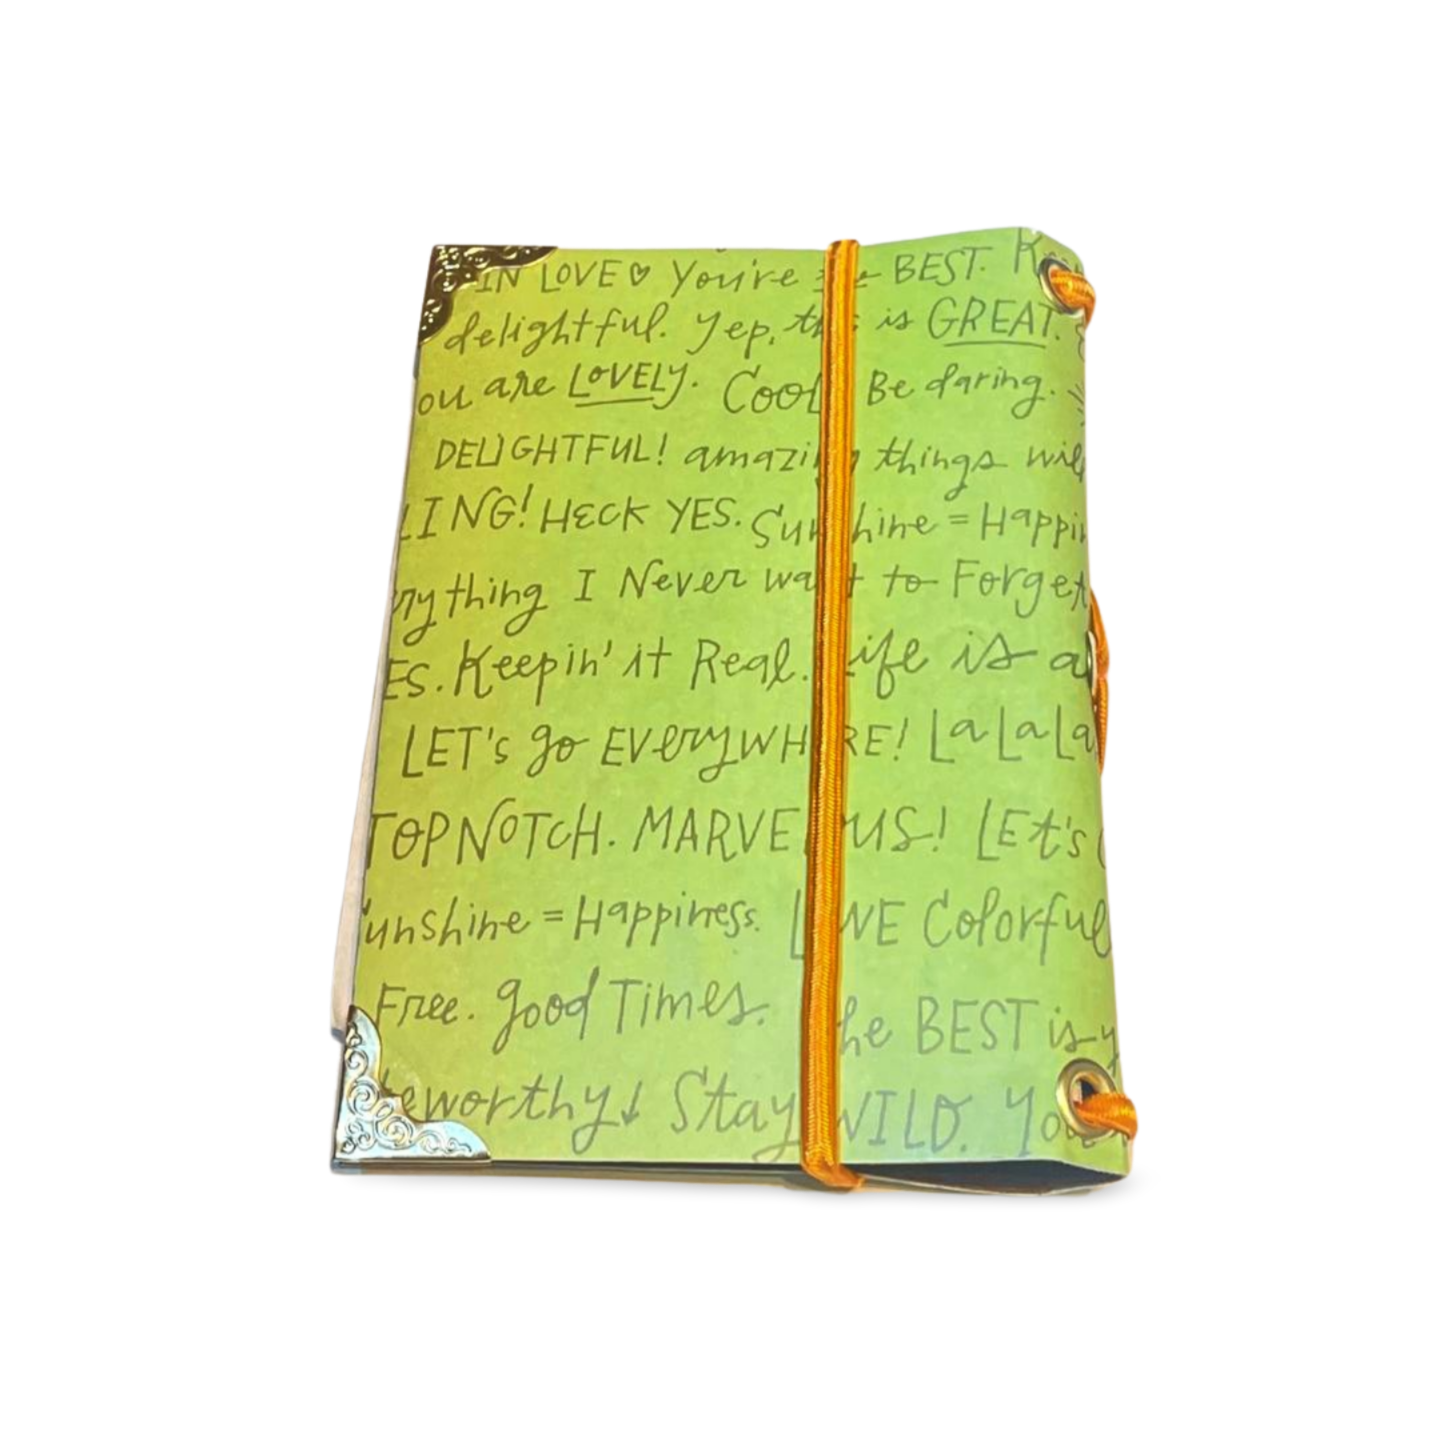 IN LOVE♡ You're BEST.
delightful. Yep, this is GREAT.
ou are LOVELY. COOL Be daring.
DELIGHTFUL! amazing things will
LING! HECK YES. Sunshine = Happin
rything I Never want to Forget
ES. Keepin' it Real. Life is a
LET's go EVERYWHERE! La La La
TOP NOTCH. MARVELOUS! LEt's
unshine = Happiness. LOVE Colorful
Free. good Times. he BEST is y
teworthy↓ Stay WILD. You